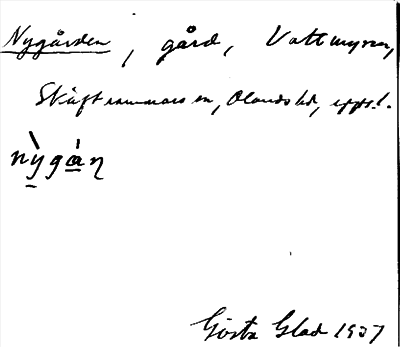 Nygården, gård, Vattmyran,
Skäfthammars sn, Olands hd, uppl.
nỳgá̱ɳ
Gösta Glad 1937